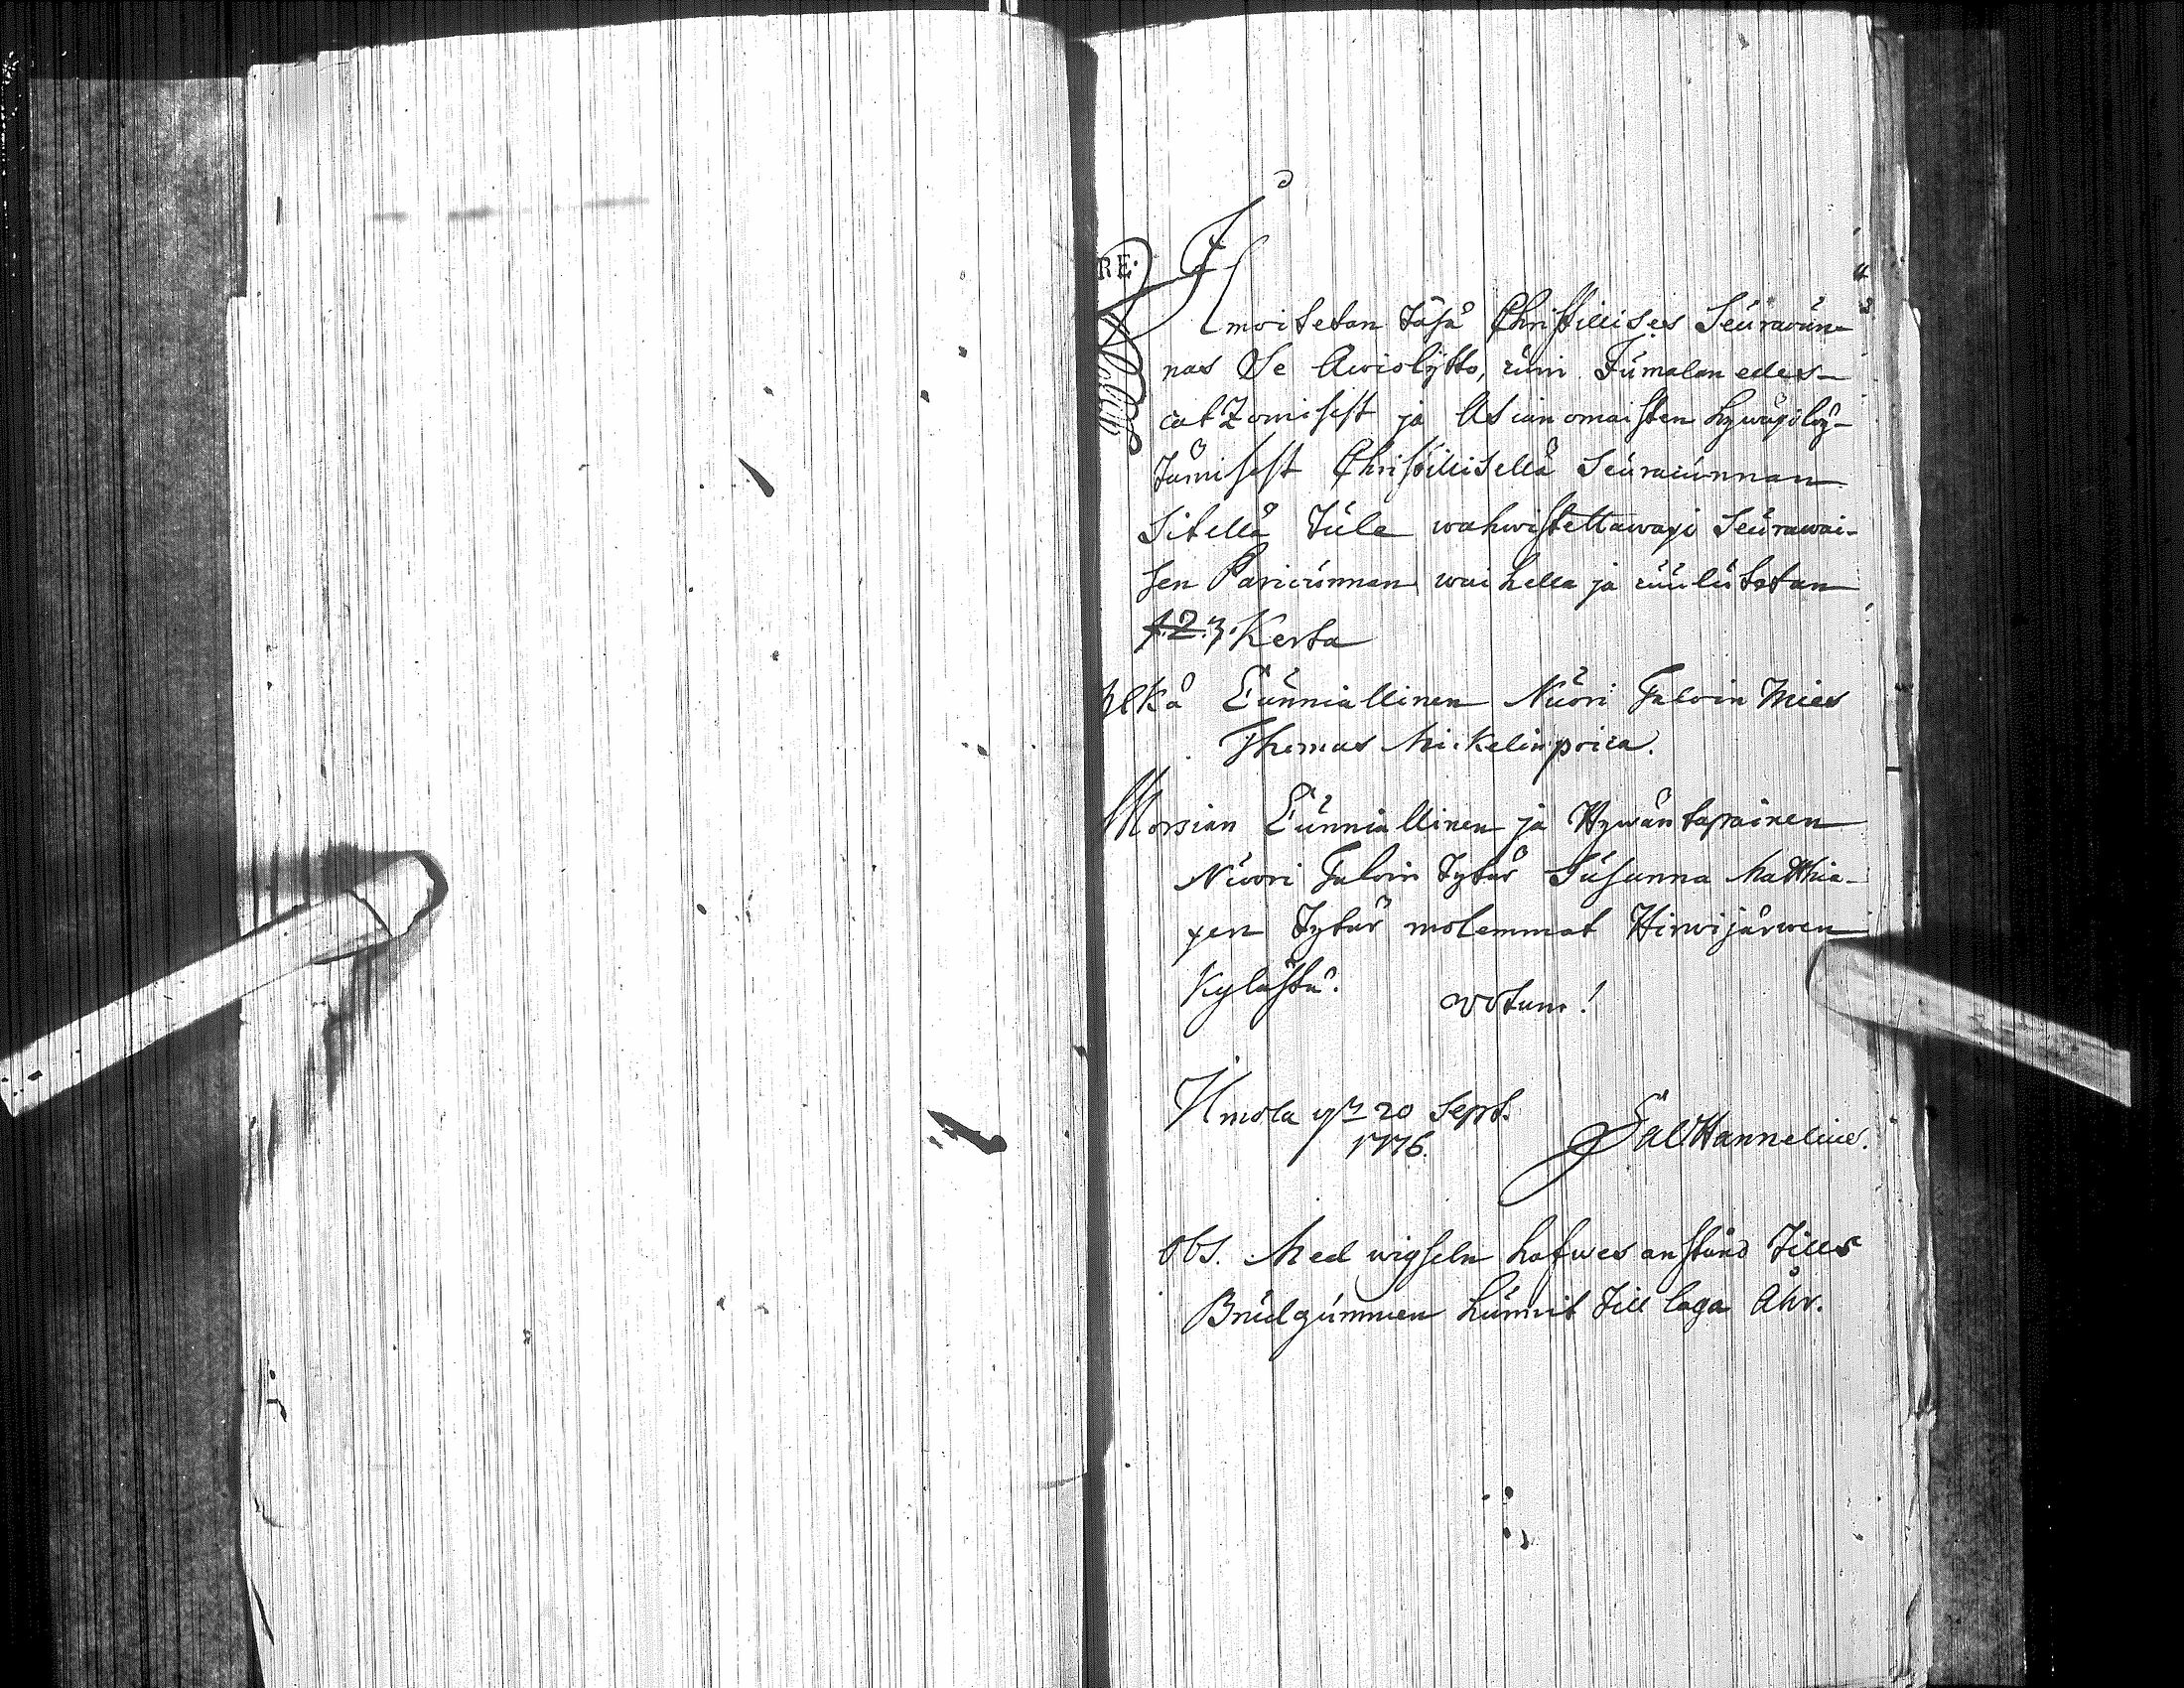 RE.
Ilmoitetan täsä Christillises Seuracun-
nas Se Awiolijtto, cuin Jumalan edes-
catzomisest ja Asianomaisten hywäxilöy-
tämisest Christillisellä Seuracunnan
Sitellä tule wahwistettawaxi Seurawai-
sen Paricunnan waihella ja cuulutetan
1. 2. 3. Kerta
Ylkä Cunniallinen Nuori Taloin Mies
Thomas Mickelinpoica.
Morsian Cunniallinen ja Hywäntapainen
Nuori Taloin Tytär Susanna Matthia-
xen Tytär molemmat Hirwijärwen
Kylästä.
votum!
Ilmola 20 Sept.
1776.
Sal Hannelius.
Obs. Med wigseln hafwes anstånd tills
Brudgummen hunnit till laga Åhr.